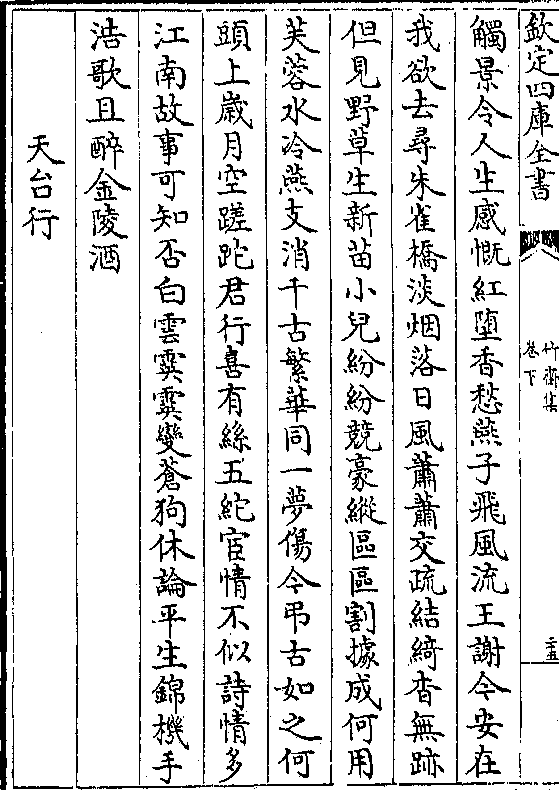 欽定四庫全書
竹齋集
卷下
二五
觸景令人生感慨紅墮香愁燕子飛風流王謝今安在
我欲去尋朱雀橋淡烟落日風蕭蕭交疏結綺杳無跡
但見野草生新苗小兒紛紛競豪縱區區割據成何用
芙蓉水冷燕支消千古繁華同一夢傷今弔古如之何
頭上歲月空蹉跎君行喜有絲五紽宦情不似詩情多
江南故事可知否白雲霙霙變蒼狗休論平生錦機手
浩歌且醉金陵酒
天台行